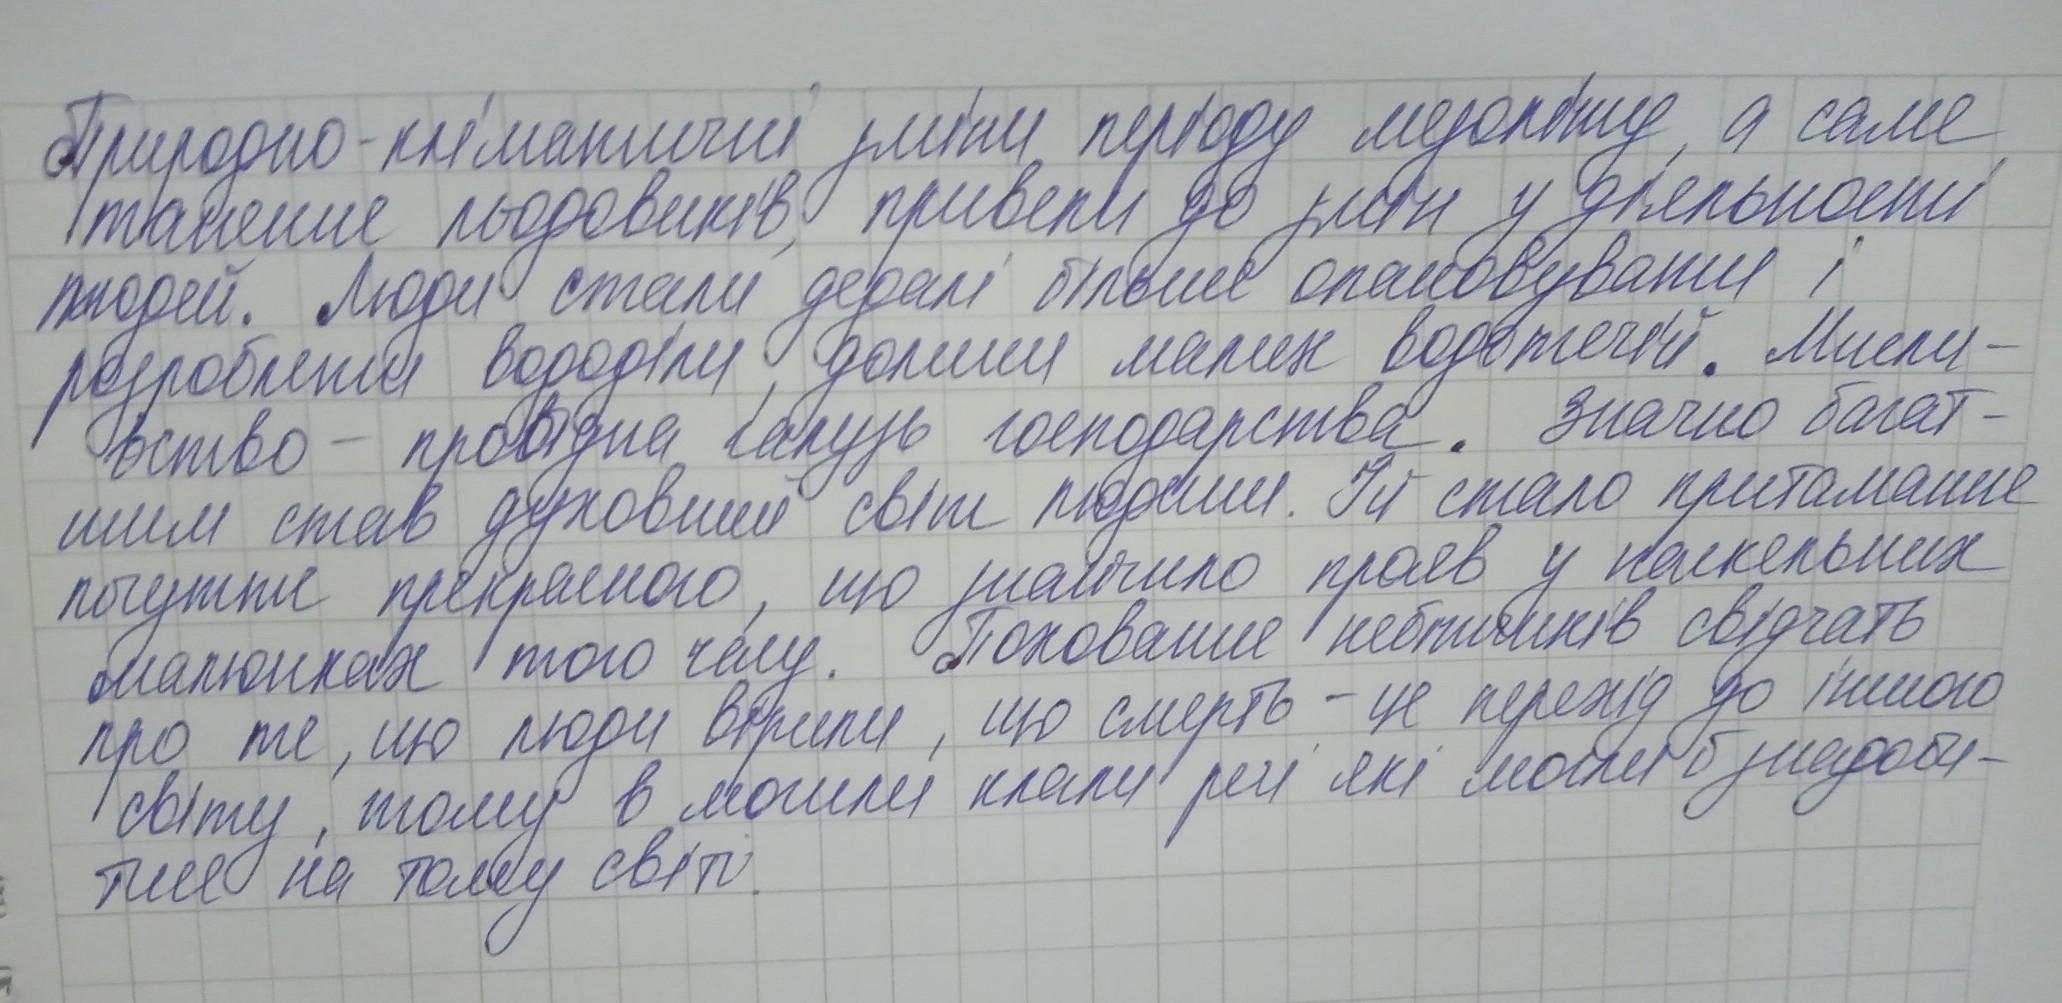 Природно-кліматичні зміни періоду мезоліту, а саме
танення льодовиків, привели до змін у діяльності
людей. Люди стали дедалі більше опановувати і
розробляти вододіли, долини малих водотечій. Мисли-
вство - провідна галузь господарства. Значно багат-
шим став духовний світ людини. Їй стало притаманне
почуття прекрасного, що знайшло прояв у наскельних
малюнках того часу. Поховання небіжчиків свідчать
про те, що люди вірили, що смерть - це перехід до іншого
світу, тому в могили клали речі які могли б знадоби-
тися на тому світі.